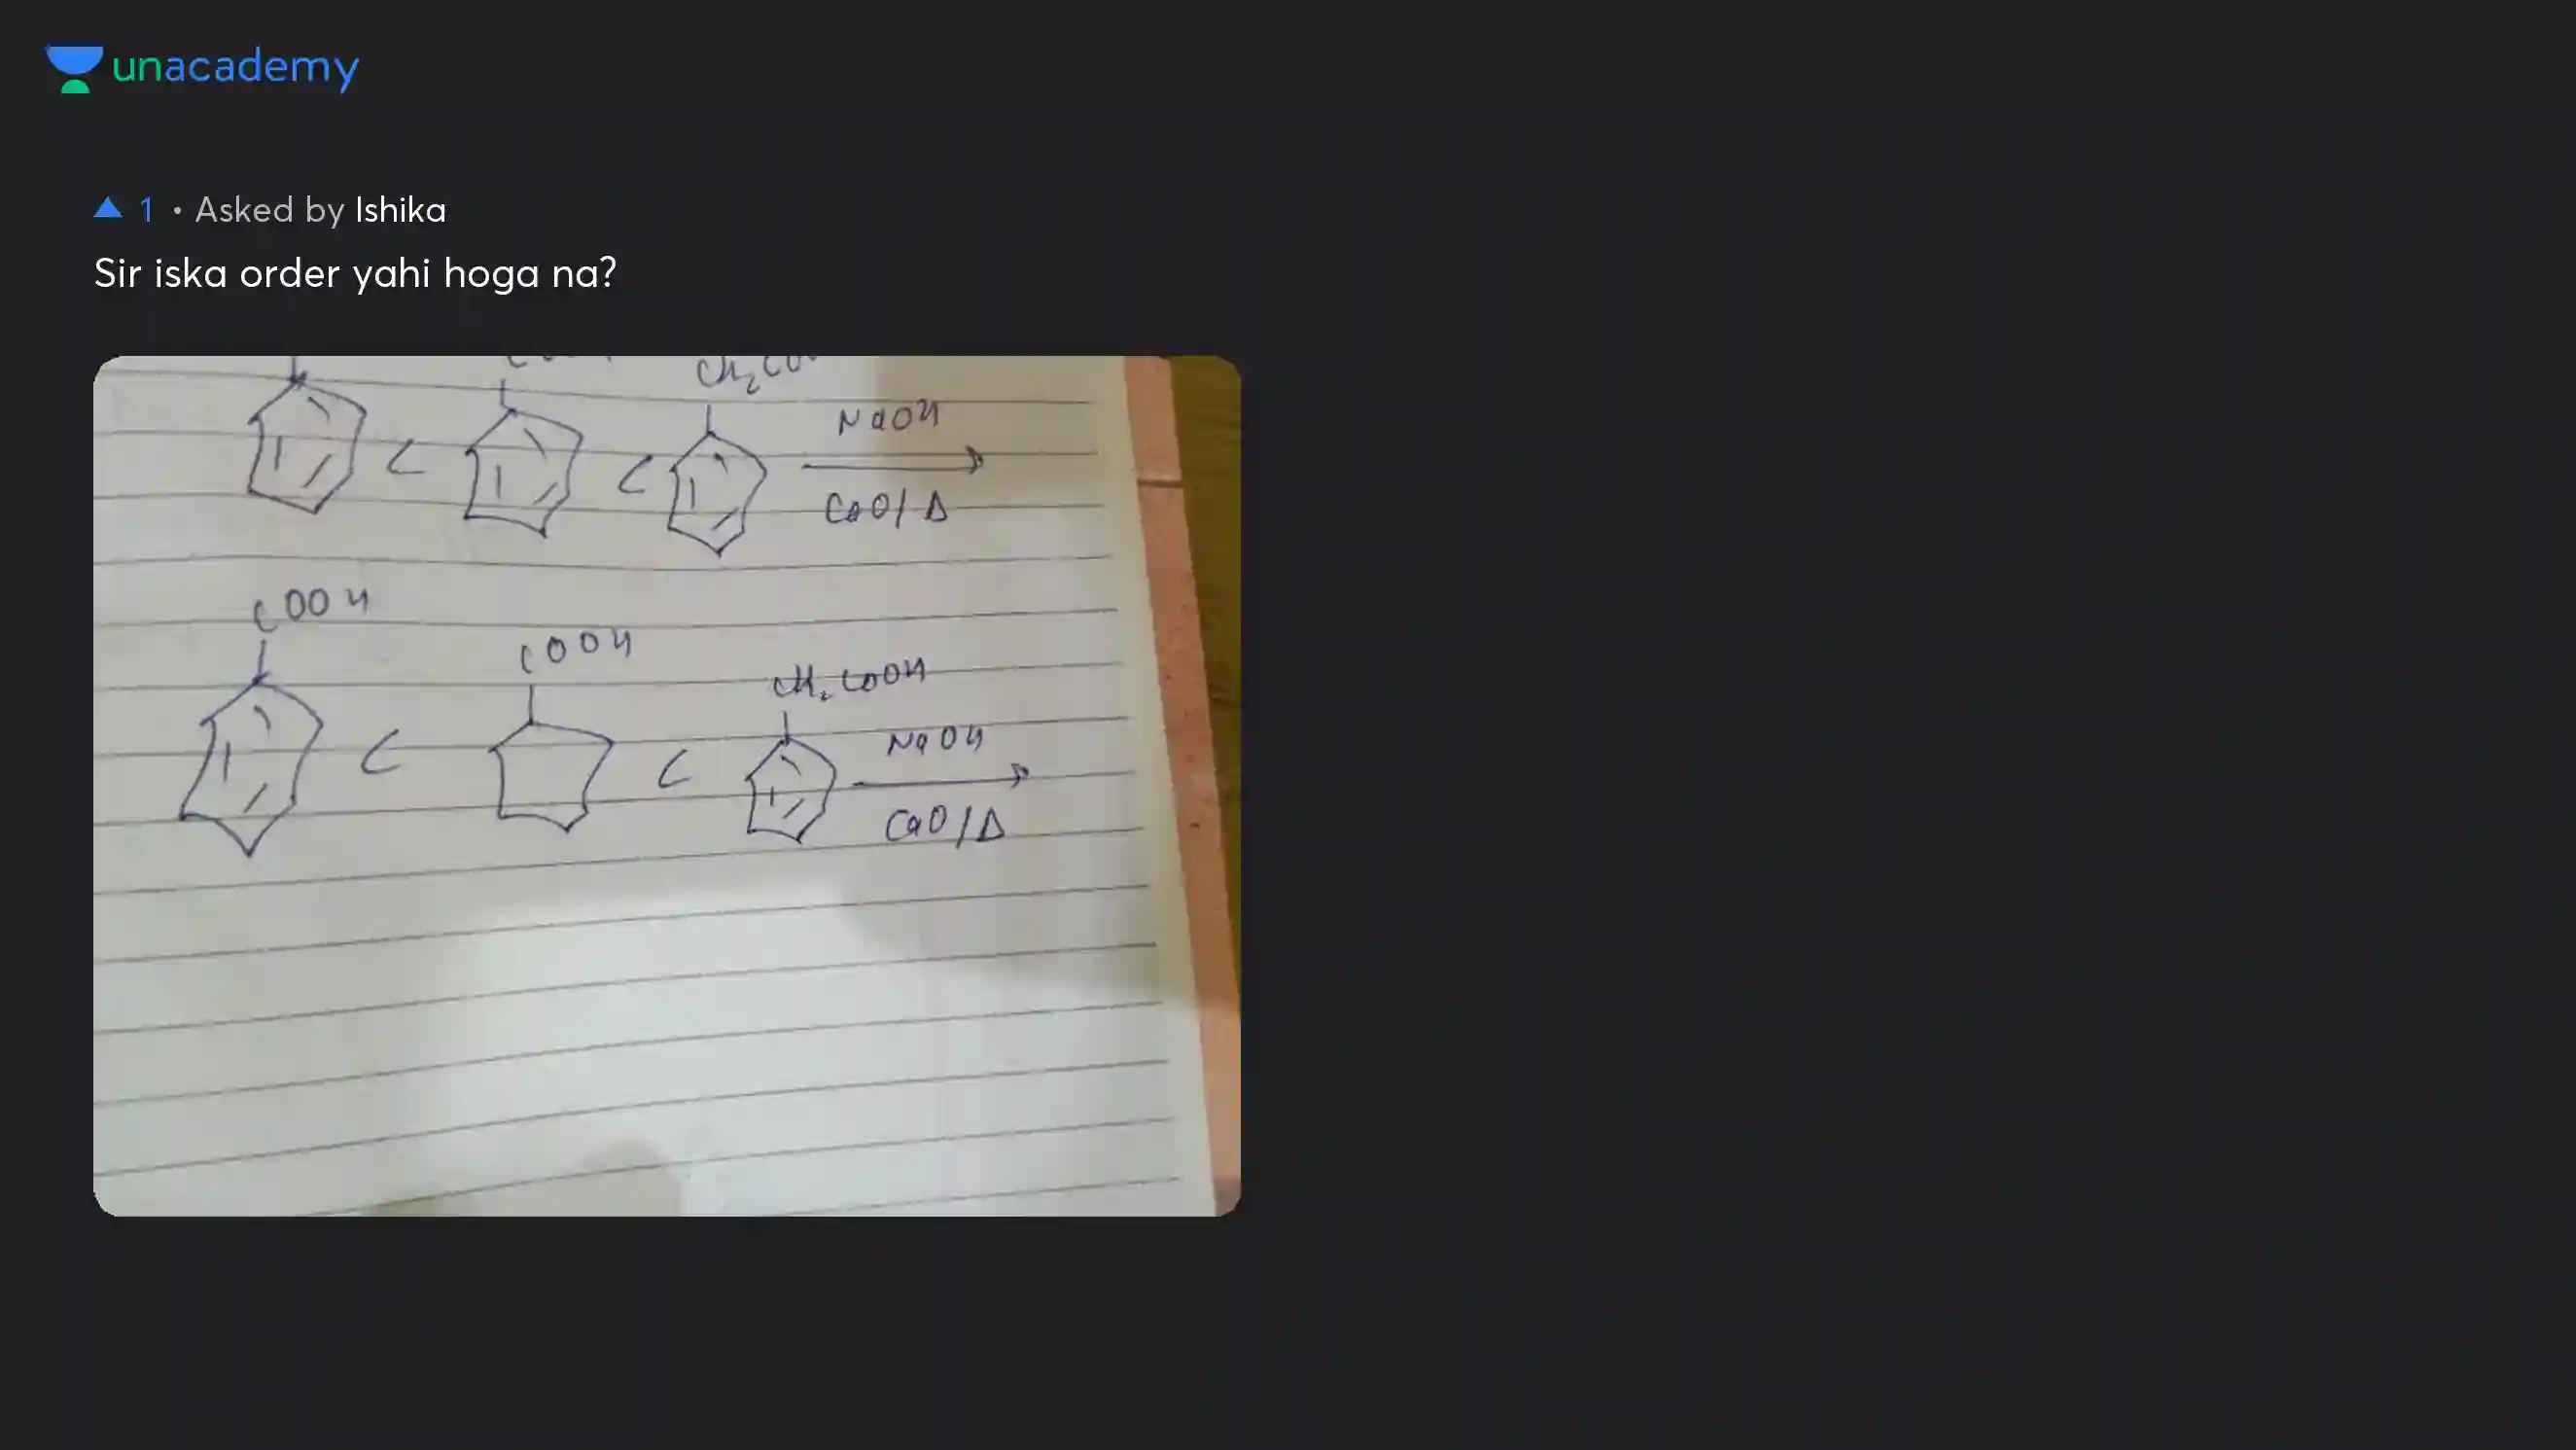 unacademy
▲ 1 • Asked by Ishika
Sir iska order yahi hoga na?
NaOH
< <
CaO/Δ
COOH
COOH
CH₂COOH
NaOH
< <
CaO/Δ